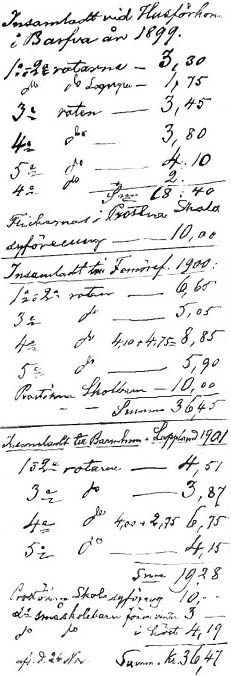 Insamladt vid Husförhör
i Barfva år 1899.
1a o 2a rotarne — 3,30
do do Loppe — 1,75
3e roten — 3,45
4e do — 3,80
5e do — 4.10
4e do 2.
S:ma 18:40
Flickornas i Skola
syförening — 10,00
Insamladt till 1900:
1a o 2a roten — 6,65
3e do — 5,05
4e do 4,10 + 4,75 = 8,85
5e do — 5,90
Skolbarn — 10,00
Summa 36,45
Insamladt till Barnhem i Lappland 1901
1 o 2a rotarne — 4,51
3e do — 3,87
4e do 4,00 + 2,75 6,75
5e do — 4,15
S:ma 19,28
Skolas syförening 10,-
d:o småskolebarn förra vinter 3 —
do do i höst 4,19
afs. d. 26 Nov. Summa Kr. 36,47